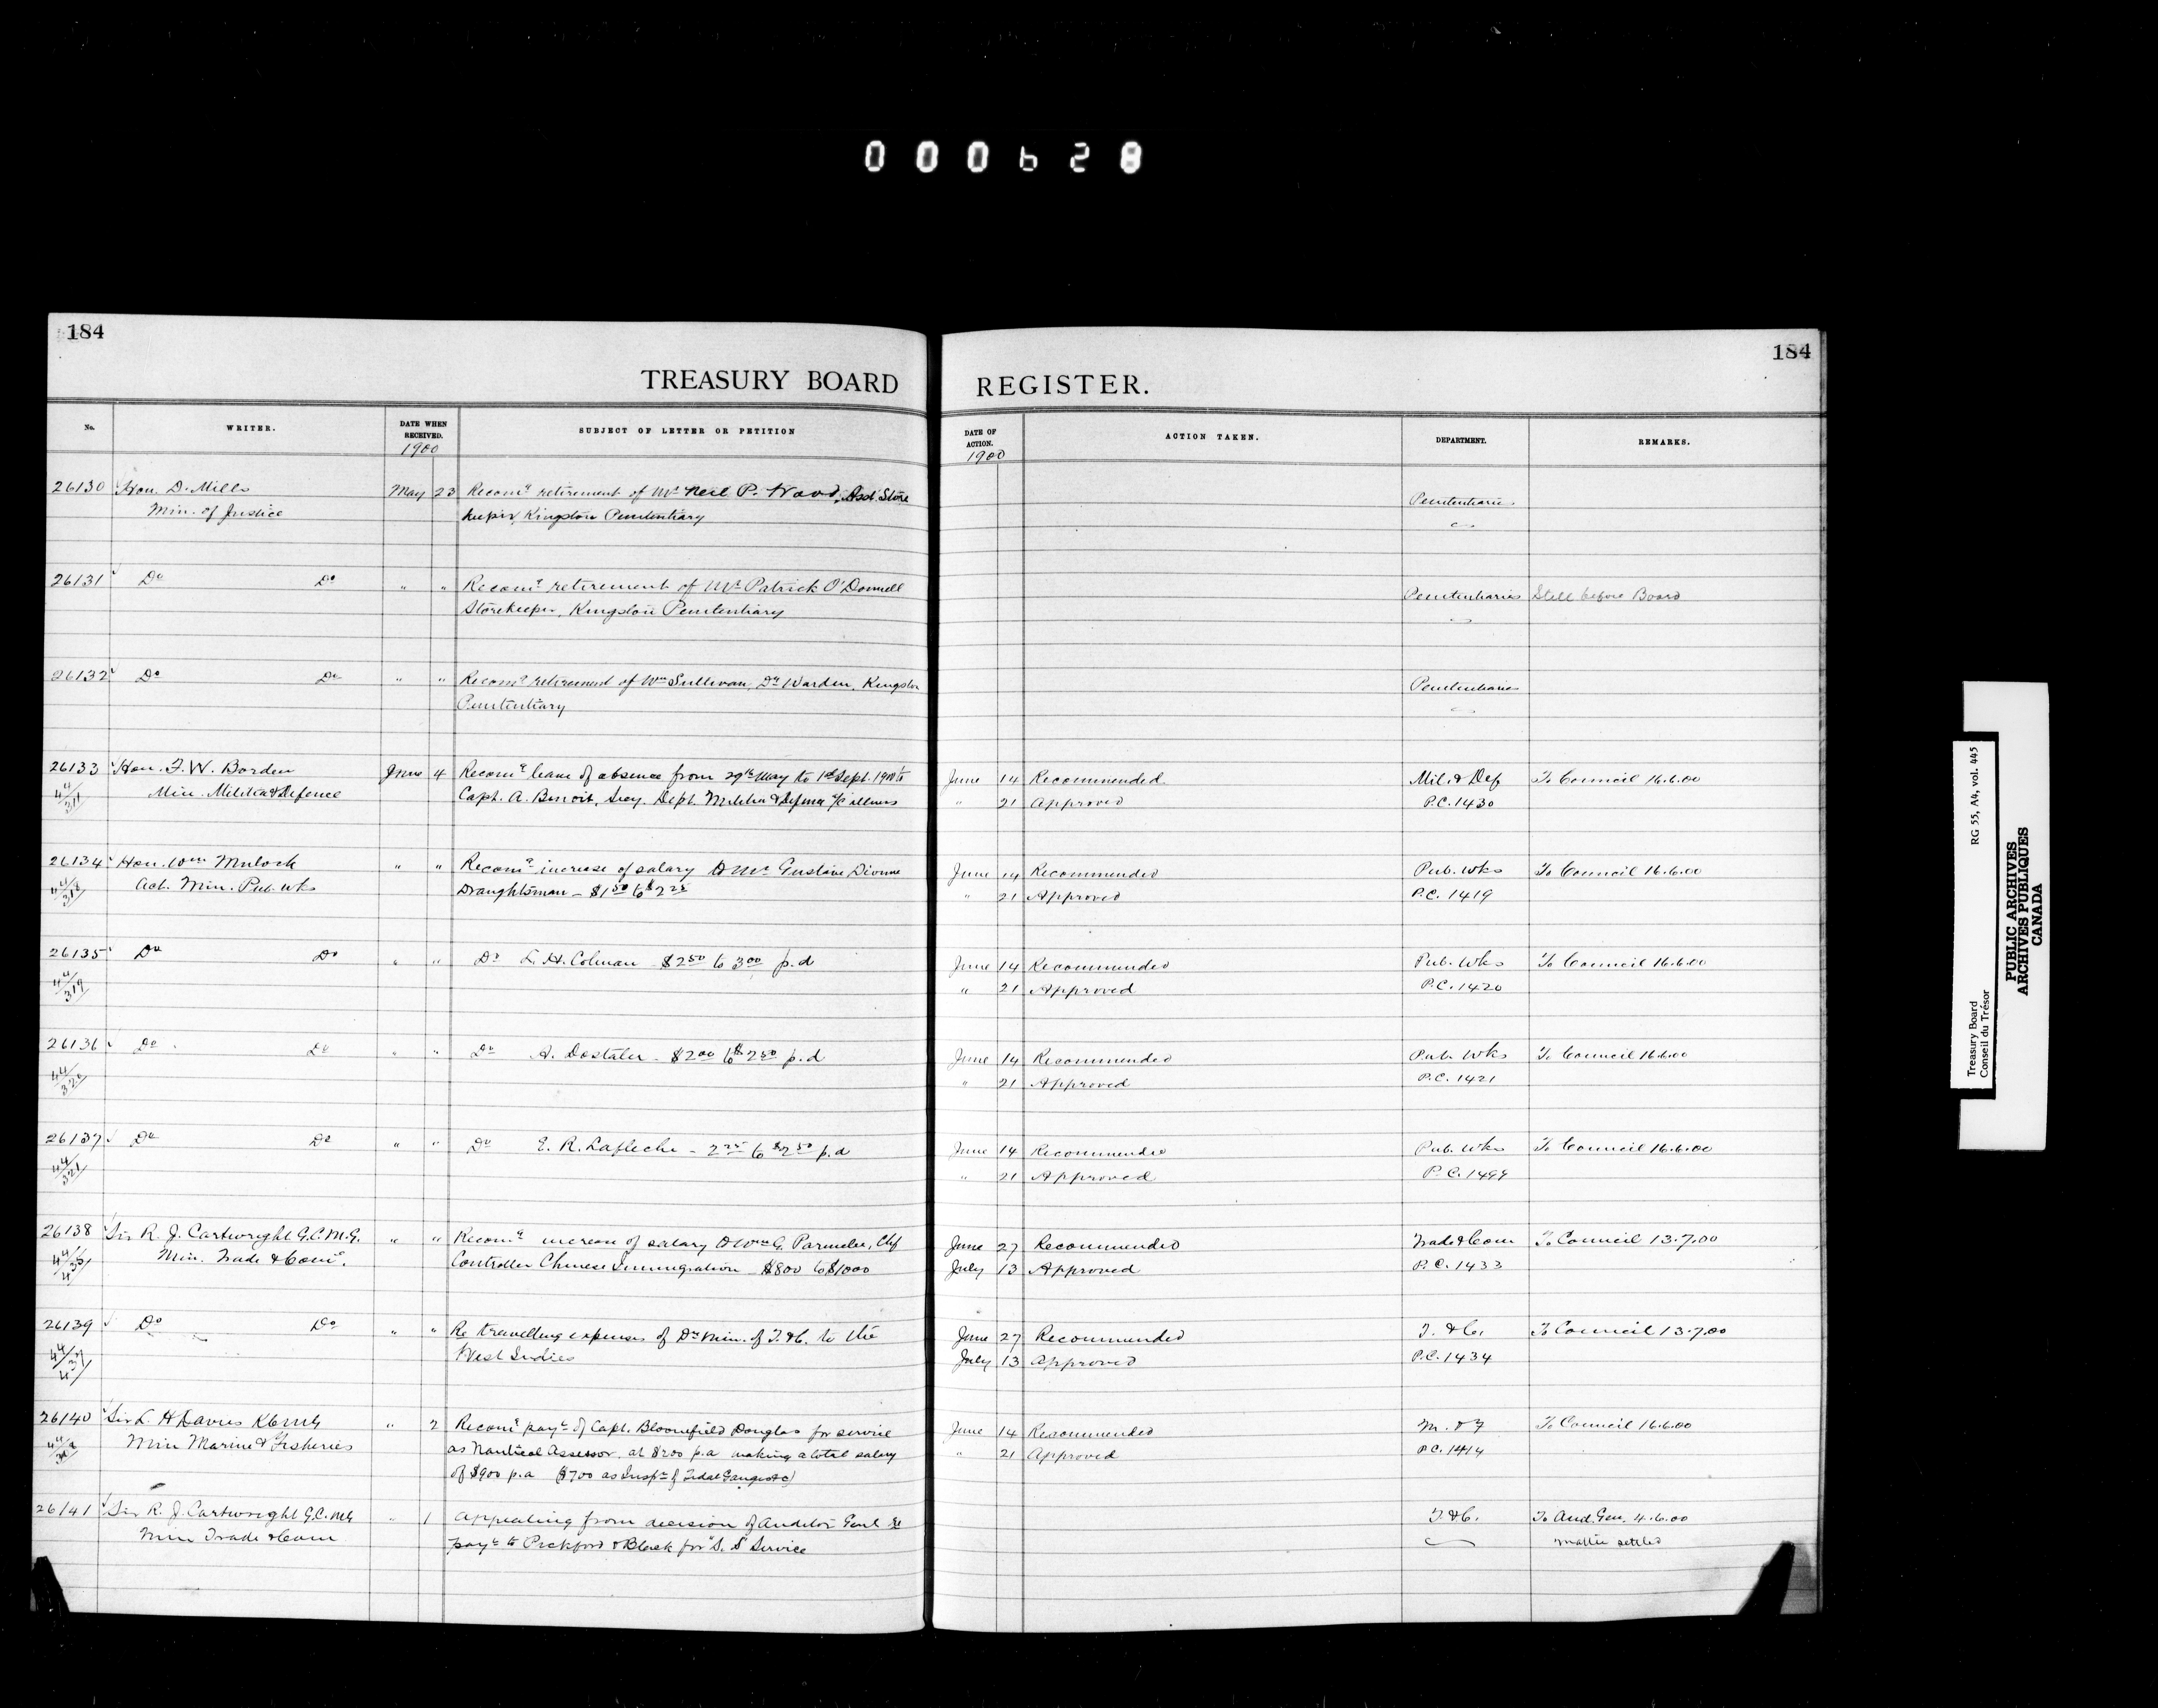 000628
184
TREASURY BOARD
No.
WRITER.
DATE WHEN RECEIVED.
1900
SUBJECT OF LETTER OR PETITION
26130 Hon. D. Mills May 23 Recomg retirement of Mr Neil P. Wood, Asst Store
Min. of Justice keeper, Kingston Penitentiary
26131 Do Do " " Recomg retirement of Mr Patrick O'Donnell
Storekeeper, Kingston Penitentiary
26132 Do Do " " Recomg retirement of Wm Sullivan, Dy Warden, Kingston
Penitentiary
26133 Hon. F. W. Borden June 4 Recomg leave of absence from 29th May to 1st Sept. 1900 to
Min. Militia & Defence Capt. A. Benoit, Secy. Dept. Militia & Defence a/c illness
26134 Hon. Wm Mulock " " Recomg increase of salary to Mr Gustave Dionne
Act. Min. Pub. Wks Draughtsman - $1 50 to $2 25
26135 Do Do " " Do L. H. Colman $2 50 to 3 00 p.d
44/319
26136 Do Do " " Do A. Dostaler - $2 00 to $2 50 p.d
44/320
26137 Do Do " " Do E. R. Lafleche - 2 25 to $2 50 p.d
44/321
26138 Sir R. J. Cartwright G.C.M.G. " " Recomg increase of salary to Wm G. Parmelee, Chf
Min. Trade & Come. Controller Chinese Immigration $800 to $1000
26139 Do Do " " Re travelling expenses of Dy Min. of T. & C. to the
West Indies
26140 Sir L. H Davies KCMG " 2 Recomg payt of Capt. Bloomfield Douglas for service
Min Marine & Fisheries as Nautical Assessor. at $200 p.a making a total salary
of $900 p.a ($700 as Inspr of Tidal Gauges &c)
26141 Sir R. J. Cartwright G.C.MG " 1 Appealing from decision of Auditor Genl re
Min Trade & Com payt to Pickford & Black for "S.S" Service
184
REGISTER.
DATE OF ACTION.
1900
ACTION TAKEN.
DEPARTMENT.
REMARKS.
Penitentiaries
Penitentiaries Still before Board
Penitentiaries
June 14 Recommended Mil. & Def To Council 16.6.00
" 21 Approved P.C. 1430
June 14 Recommended Pub. Wks To Council 16.6.00
" 21 Approved P.C. 1419
June 14 Recommended Pub. Wks To Council 16.6.00
" 21 Approved P.C. 1420
June 14 Recommended Pub. Wks To Council 16.6.00
" 21 Approved P.C. 1421
June 14 Recommended Pub. Wks To Council 16.6.00
" 21 Approved P.C. 1499
June 27 Recommended Trade & Com To Council 13.7.00
July 13 Approved P.C. 1433
June 27 Recommended T. & C. To Council 13.7.00
July 13 Approved P.C. 1434
June 14 Recommended M. & F To Council 16.6.00
" 21 Approved P.C. 1414
T & C. To Aud. Gen. 4.6.00
matter settled
Treasury Board RG 55, A4, vol. 445
Conseil du Trésor
PUBLIC ARCHIVES
ARCHIVES PUBLIQUES
CANADA